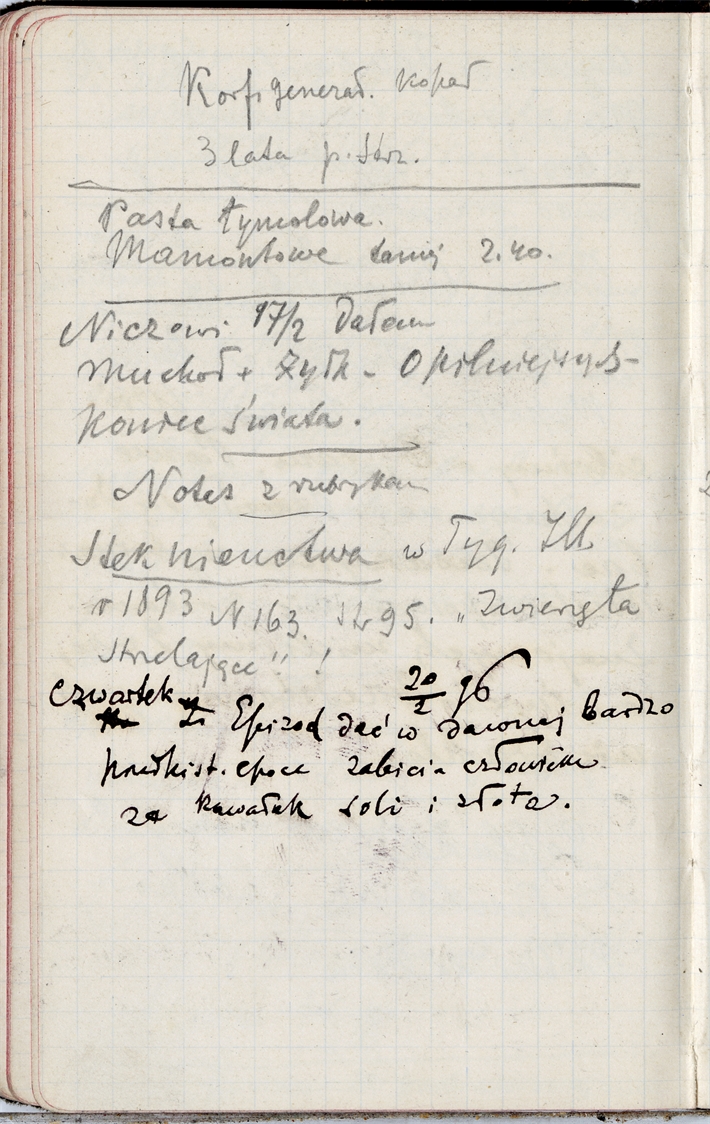 Korf. generał. kopał
3 lata p.
Pasta tymolowa.
Mamontowe taniej 2.40.
Niczowi 17/2 Dałem
Muchoł + Żydk - O pilniejszych
Koniec świata.
Notes z rubrykam
Stek nieuctwa w Tyg. Ill
r 1893 N 163. Str 95. „Zwierzęta
strzelające" !
Czwartek 20/2 96
Epizod dać w dawnej bardzo
przedhist. epoce zabicia człowieka
za kawałek soli i złota.